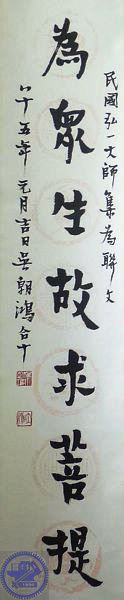 民國弘一大師集為聯文
為眾生故求菩提
八十五年元月吉日吳朗鴻合十